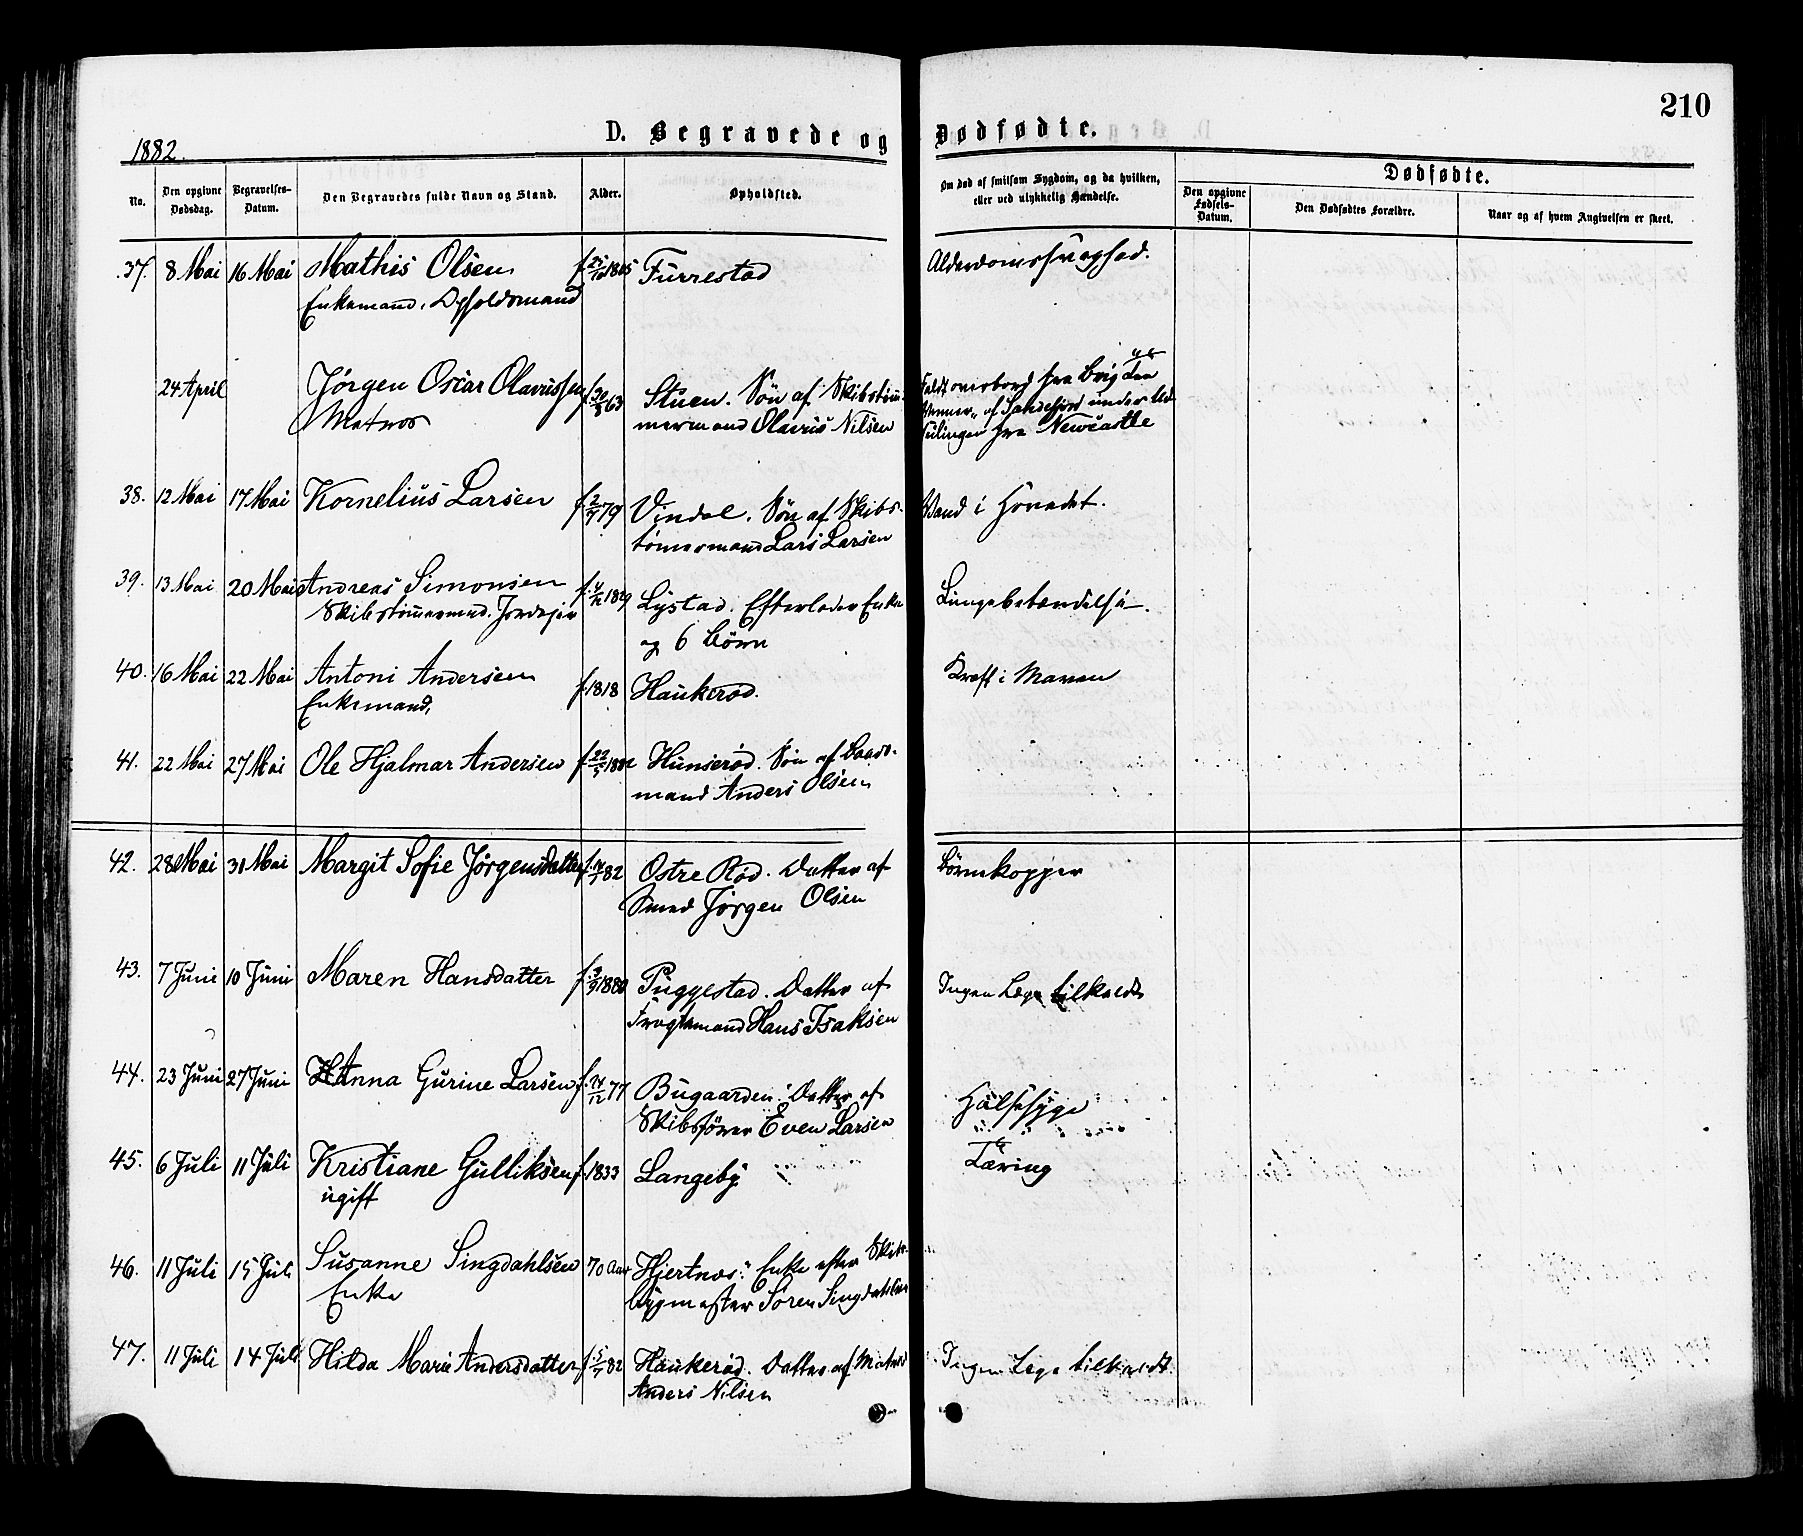 210
1882.
D. Begravede og Dødfødte.
No.
Den opgivne Dødsdag.
Begravelses-Datum.
Den Begravedes fulde Navn og Stand.
Alder.
Opholdsted.
Om død af smitsom Sygdom, og da hvilken, eller ved ulykkelig Hændelse.
Dødfødte.
Den opgivne Fødsels-Datum.
Den Dødfødtes Forældre.
Naar og af hvem Angivelsen er skeet.
37. 8 Mai 16 Mai Mathis Olsen Furrestad Alderdomssvaghed.
Enkemand,
24 April Jørgen Oscar Olavussen Stuen. Søn af Skibstøm-
Matros mermand Olavus Nilsen
Faldt overbord fra Brig
af Sandefjord under
Seilingen fra Newcastle
38. 12 Mai 17 Mai Kornelius Larsen f. 2/9 79 Vindal. Søn af Skibs- Vand i Hovedet.
tømmermand Lars Larsen
39. 13 Mai 20 Mai Andreas Simonsen Lystad. Efterlader Enke Lungebetændelse.
Skibstømmermand. og 6 Børn
40. 16 Mai 22 Mai Antoni Andersen f. 1818 Haukerød. Kræft i Maven
Enkemand,
41. 22 Mai 27 Mai Ole Hjalmar Andersen f. 22/5 1882 Hunserød. Søn af Baads-
mand Anders Olsen
42. 28 Mai 31 Mai Margit Sofie Jørgensdatter Østre Rød. Datter af Børnekopper
Smed Jørgen Olsen
43. 7 Juni 10 Juni Maren Hansdatter Puggestad. Datter af Ingen Læge tilkaldt
Fragtemand Hans Isaksen
44. 23 Juni 27 Juni Anna Gurine Larsen f. 14/12 77 Bugaarden. Datter af Halssyge
Skibsfører Even Larsen
45. 6 Juli 11 Juli Kristiane Gulliksen f. 1833 Langeby Tæring
ugift
46. 11 Juli 15 Juli Susanne Singdahlsen 70 Aar Hjertnes. Enke efter Skibs-
Enke bygmester Søren Singdahlsen
47. 11 Juli 14 Juli Hilda Marie Andersdatter f. 5/7 82 Haukerød. Datter af Matros Ingen Læge tilkaldt.
Anders Nilsen